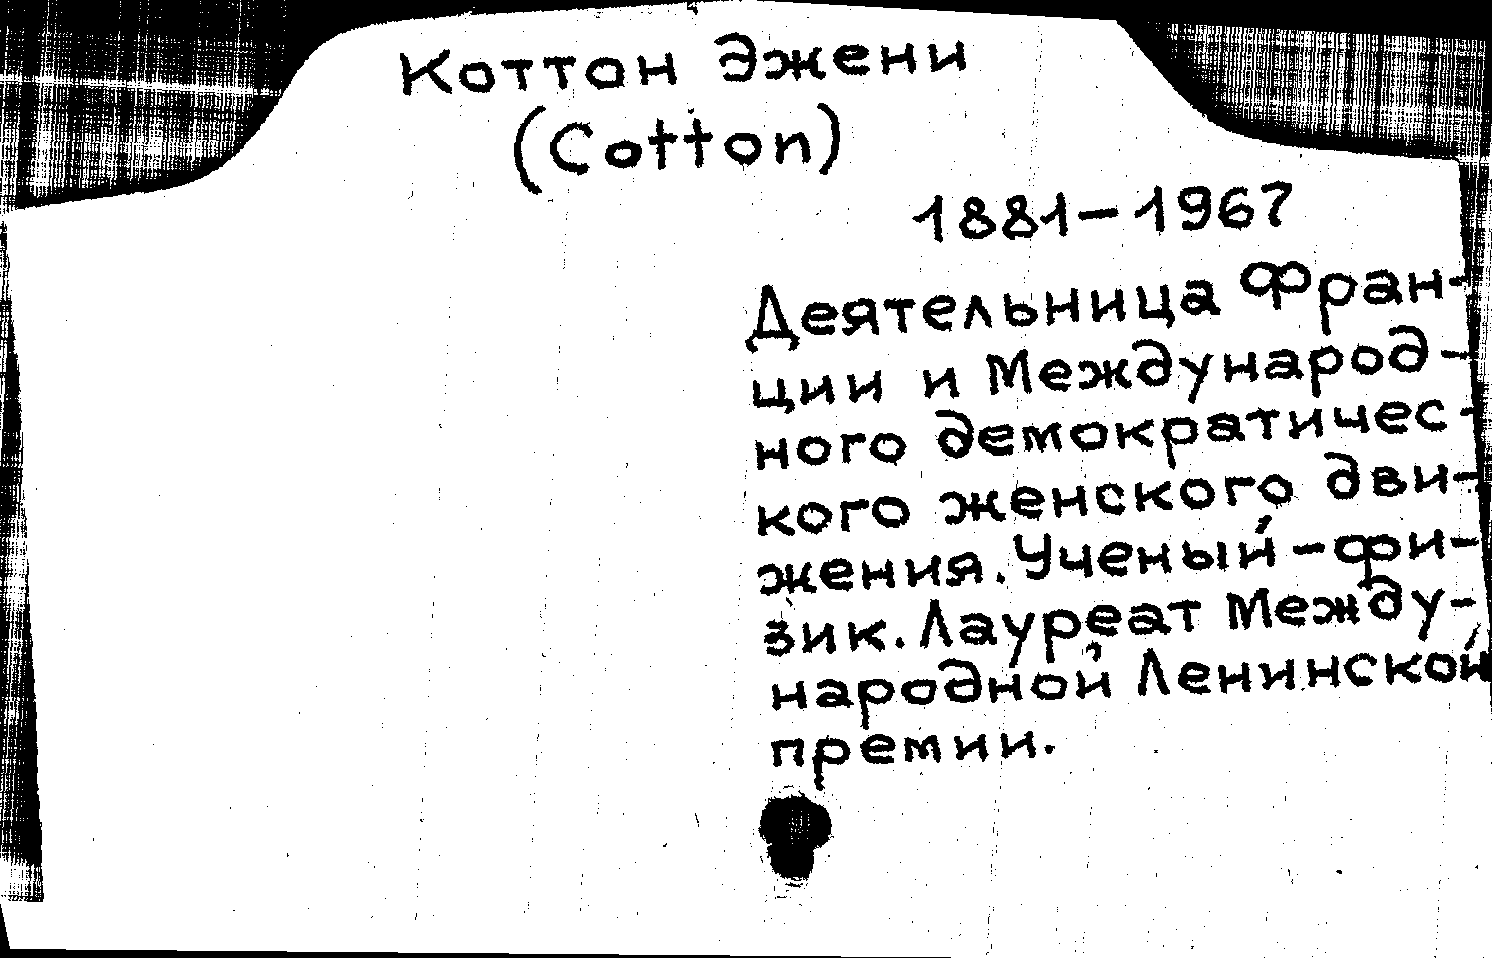 Коттон Эжени
(Cotton)
1881–1967
Деятельница Фран-
ции и Международ-
ного демократичес-
кого женского дви-
жения. Ученый-фи-
зик. Лауреат Между-
народной Ленинской
премии.